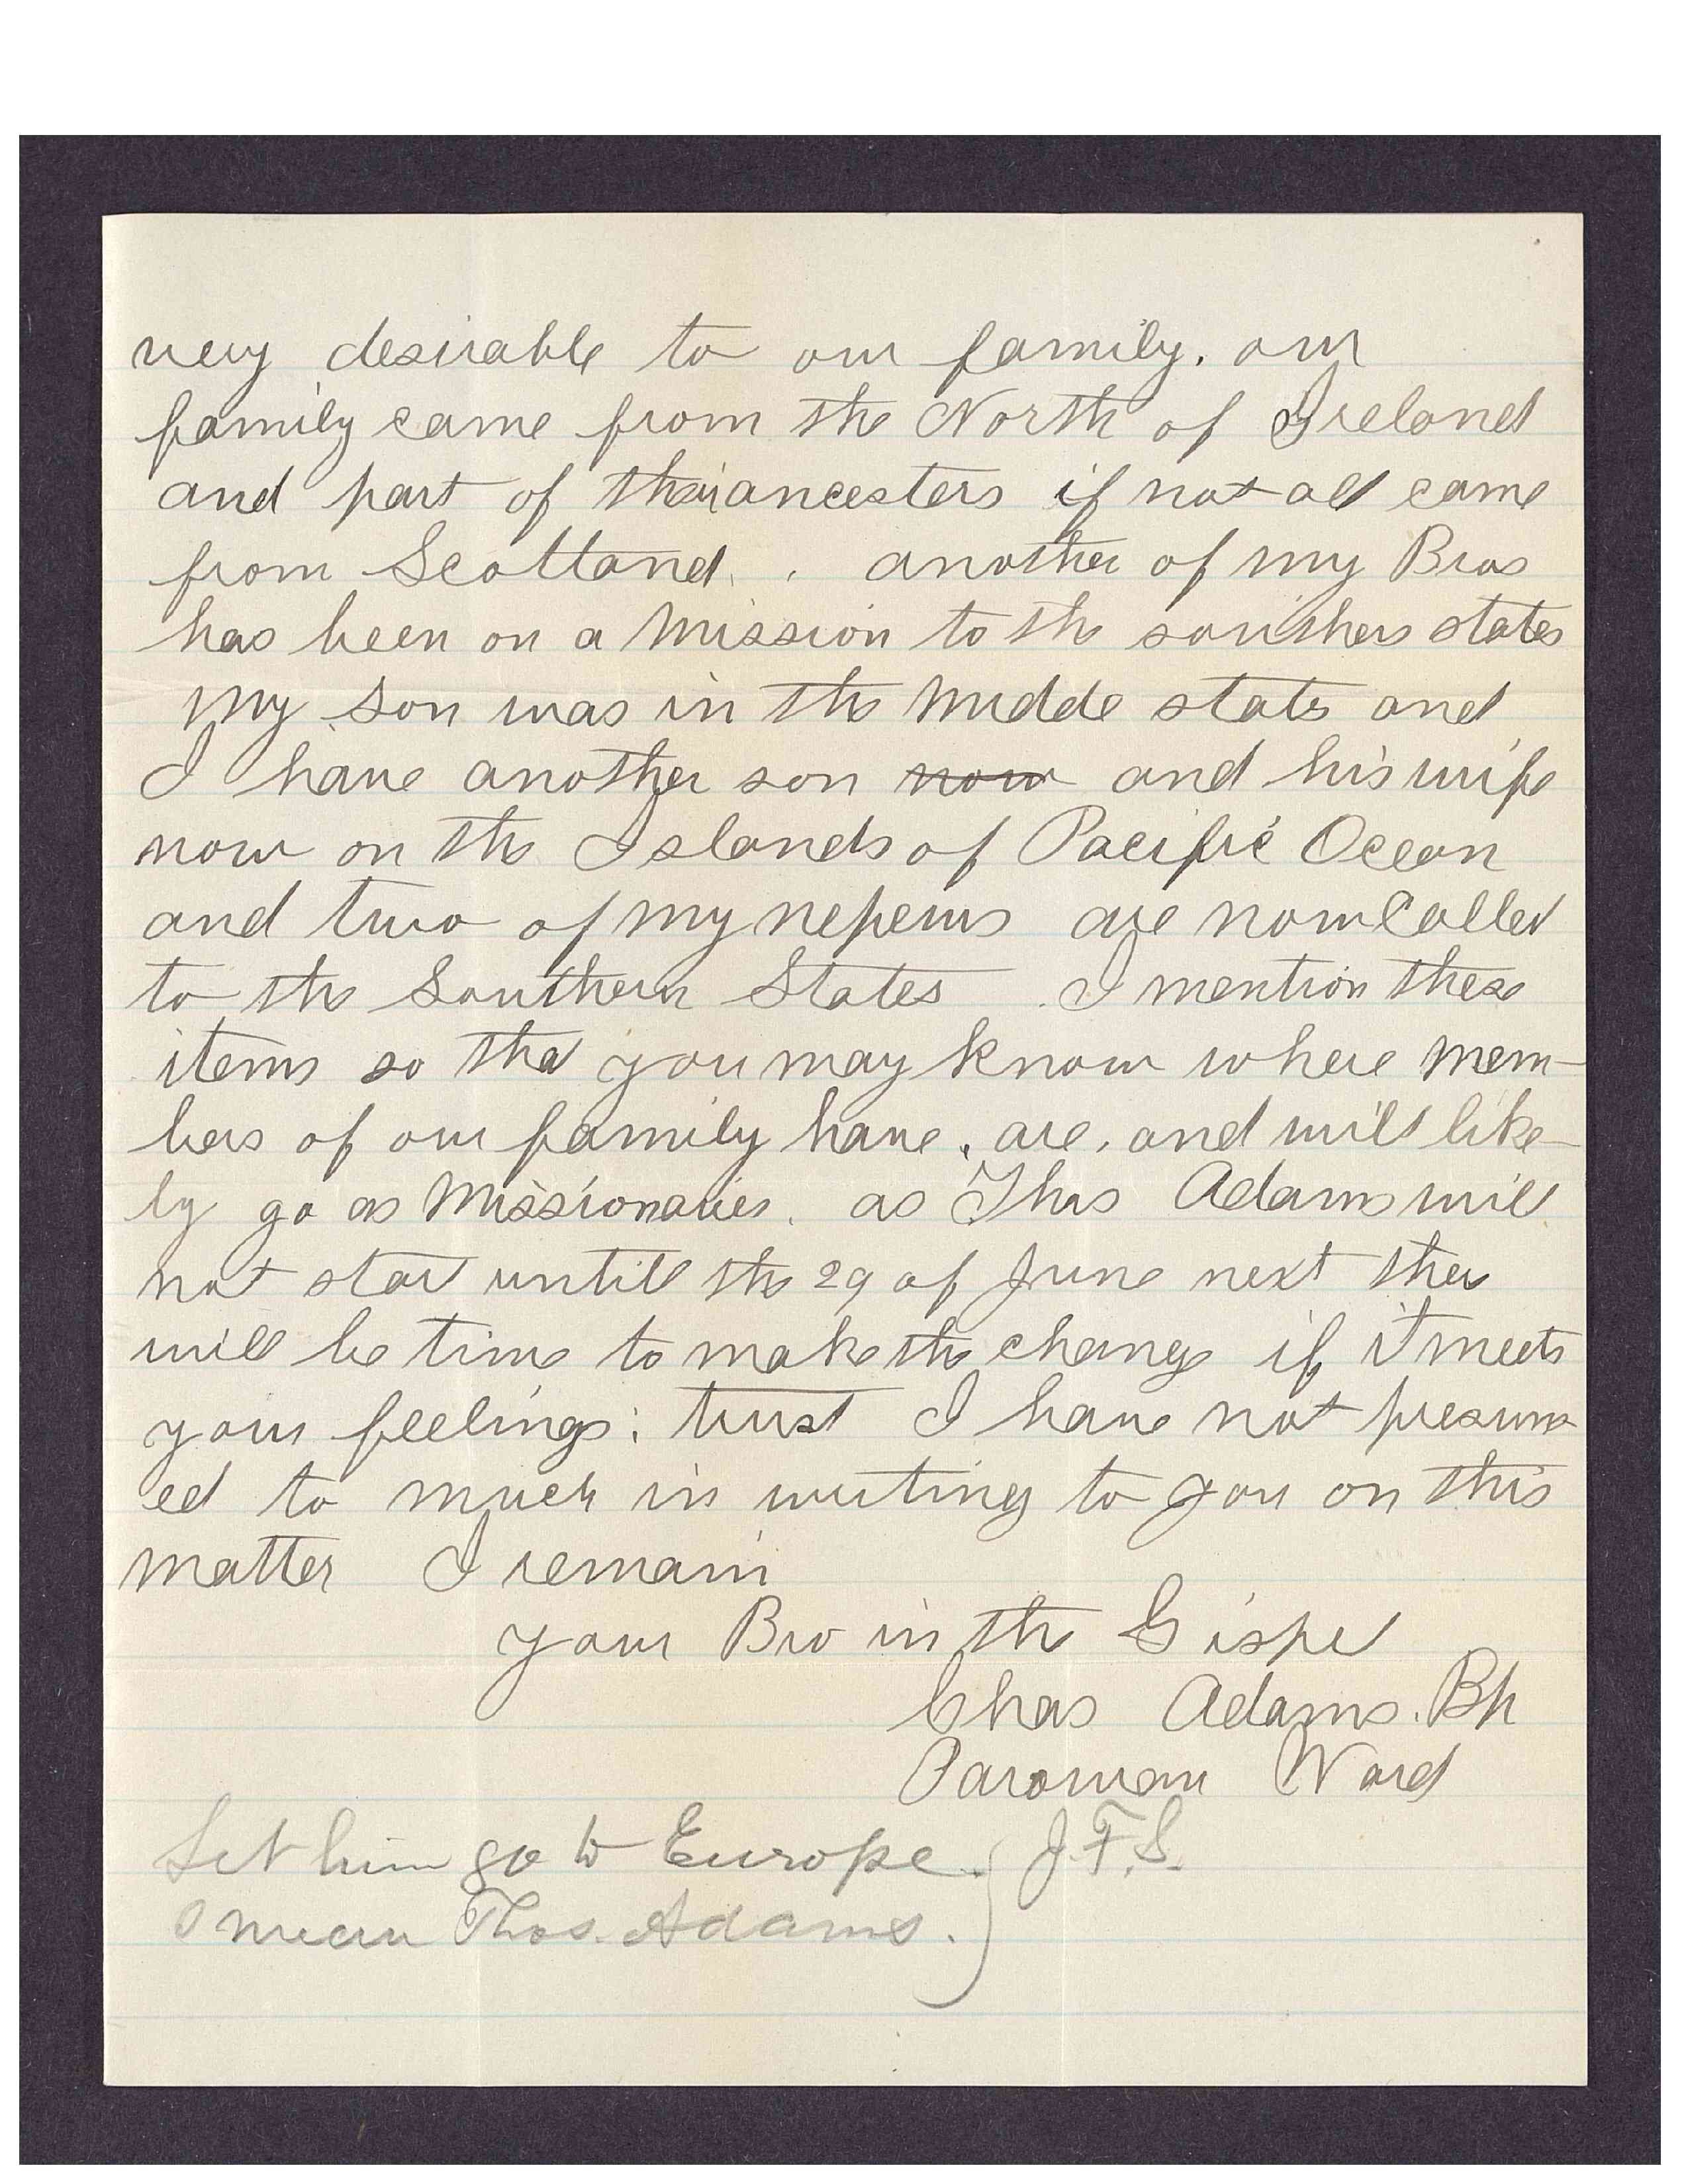 very desirable to our family. our
family came from the North of Ireland
and part of their ancesters if not all came
from Scottland. another of my Bros
has been on a Mission to the southern states
my son was in the Midde states and
I have another son now and his wife
now on the Islands of Pacific Ocean
and two of my nepews are now Called
to the Southern States I mention these
items so that you may know where mem-
bers of our family have, are, and will like-
ly go as Missionaries. as Thos Adams will
not start until the 29 of June next ther
will be time to make the change if it meets
your feelings; trust I have not presum
ed to much in writing to you on this
matter I remain
your Bro in the Gispel
Chas Adams. Bp
Parowan Ward
Let him go to Europe. J.F.S.
I mean Thos. Adams.